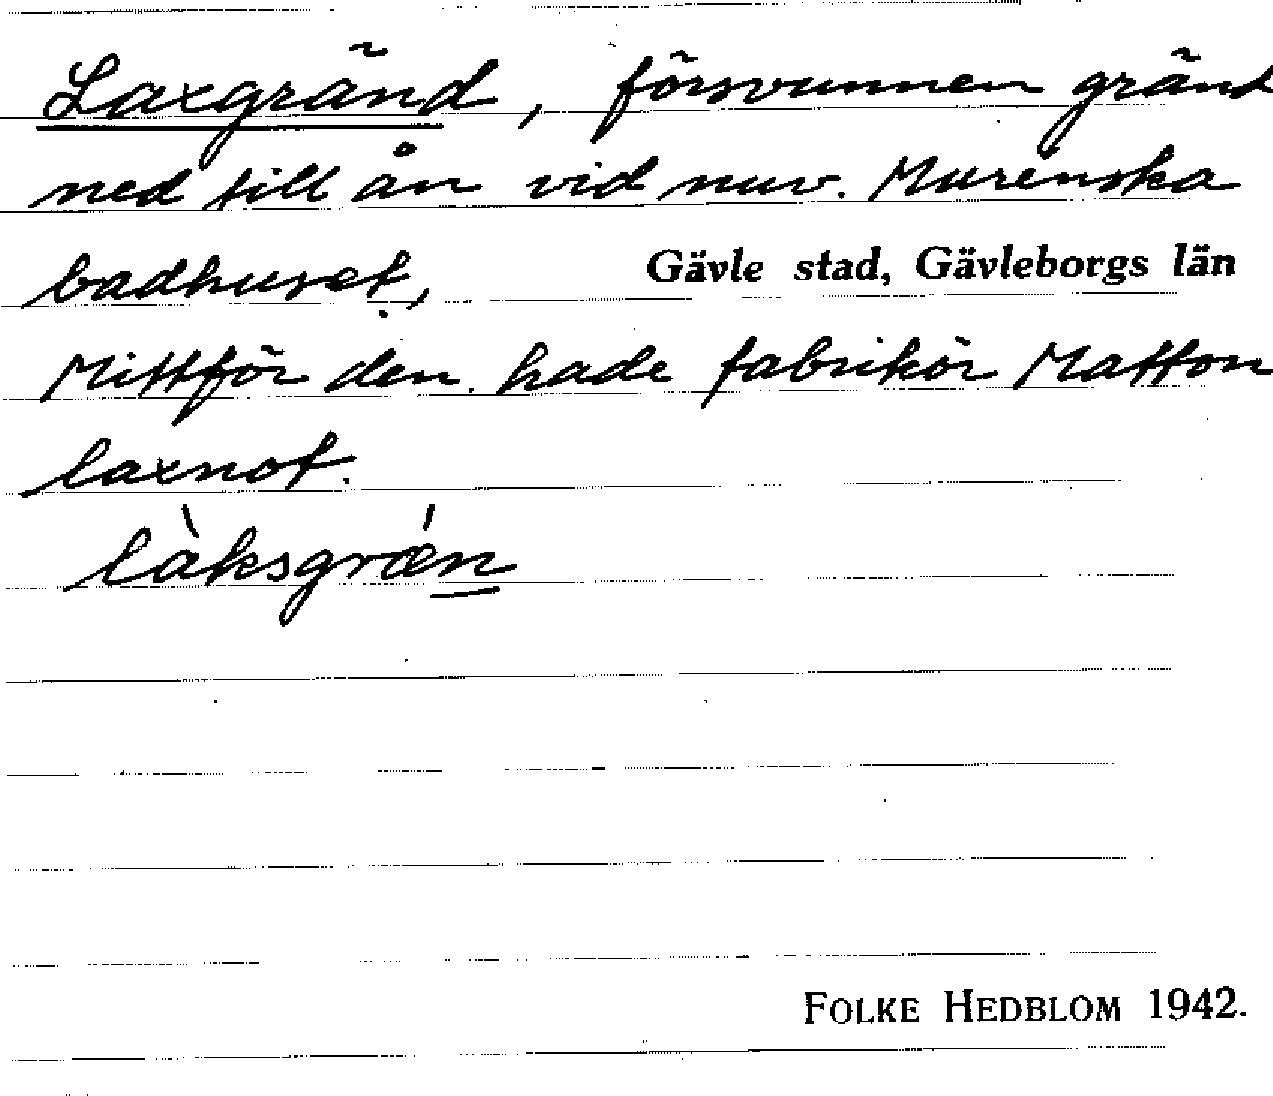 Laxgränd, försvunnen gränd
ned till ån vid nuv. Murénska
badhuset, Gävle stad, Gävleborgs län
Mittför den hade fabrikör Matton
laxnot.
làksgrǽn
FOLKE HEDBLOM 1942.